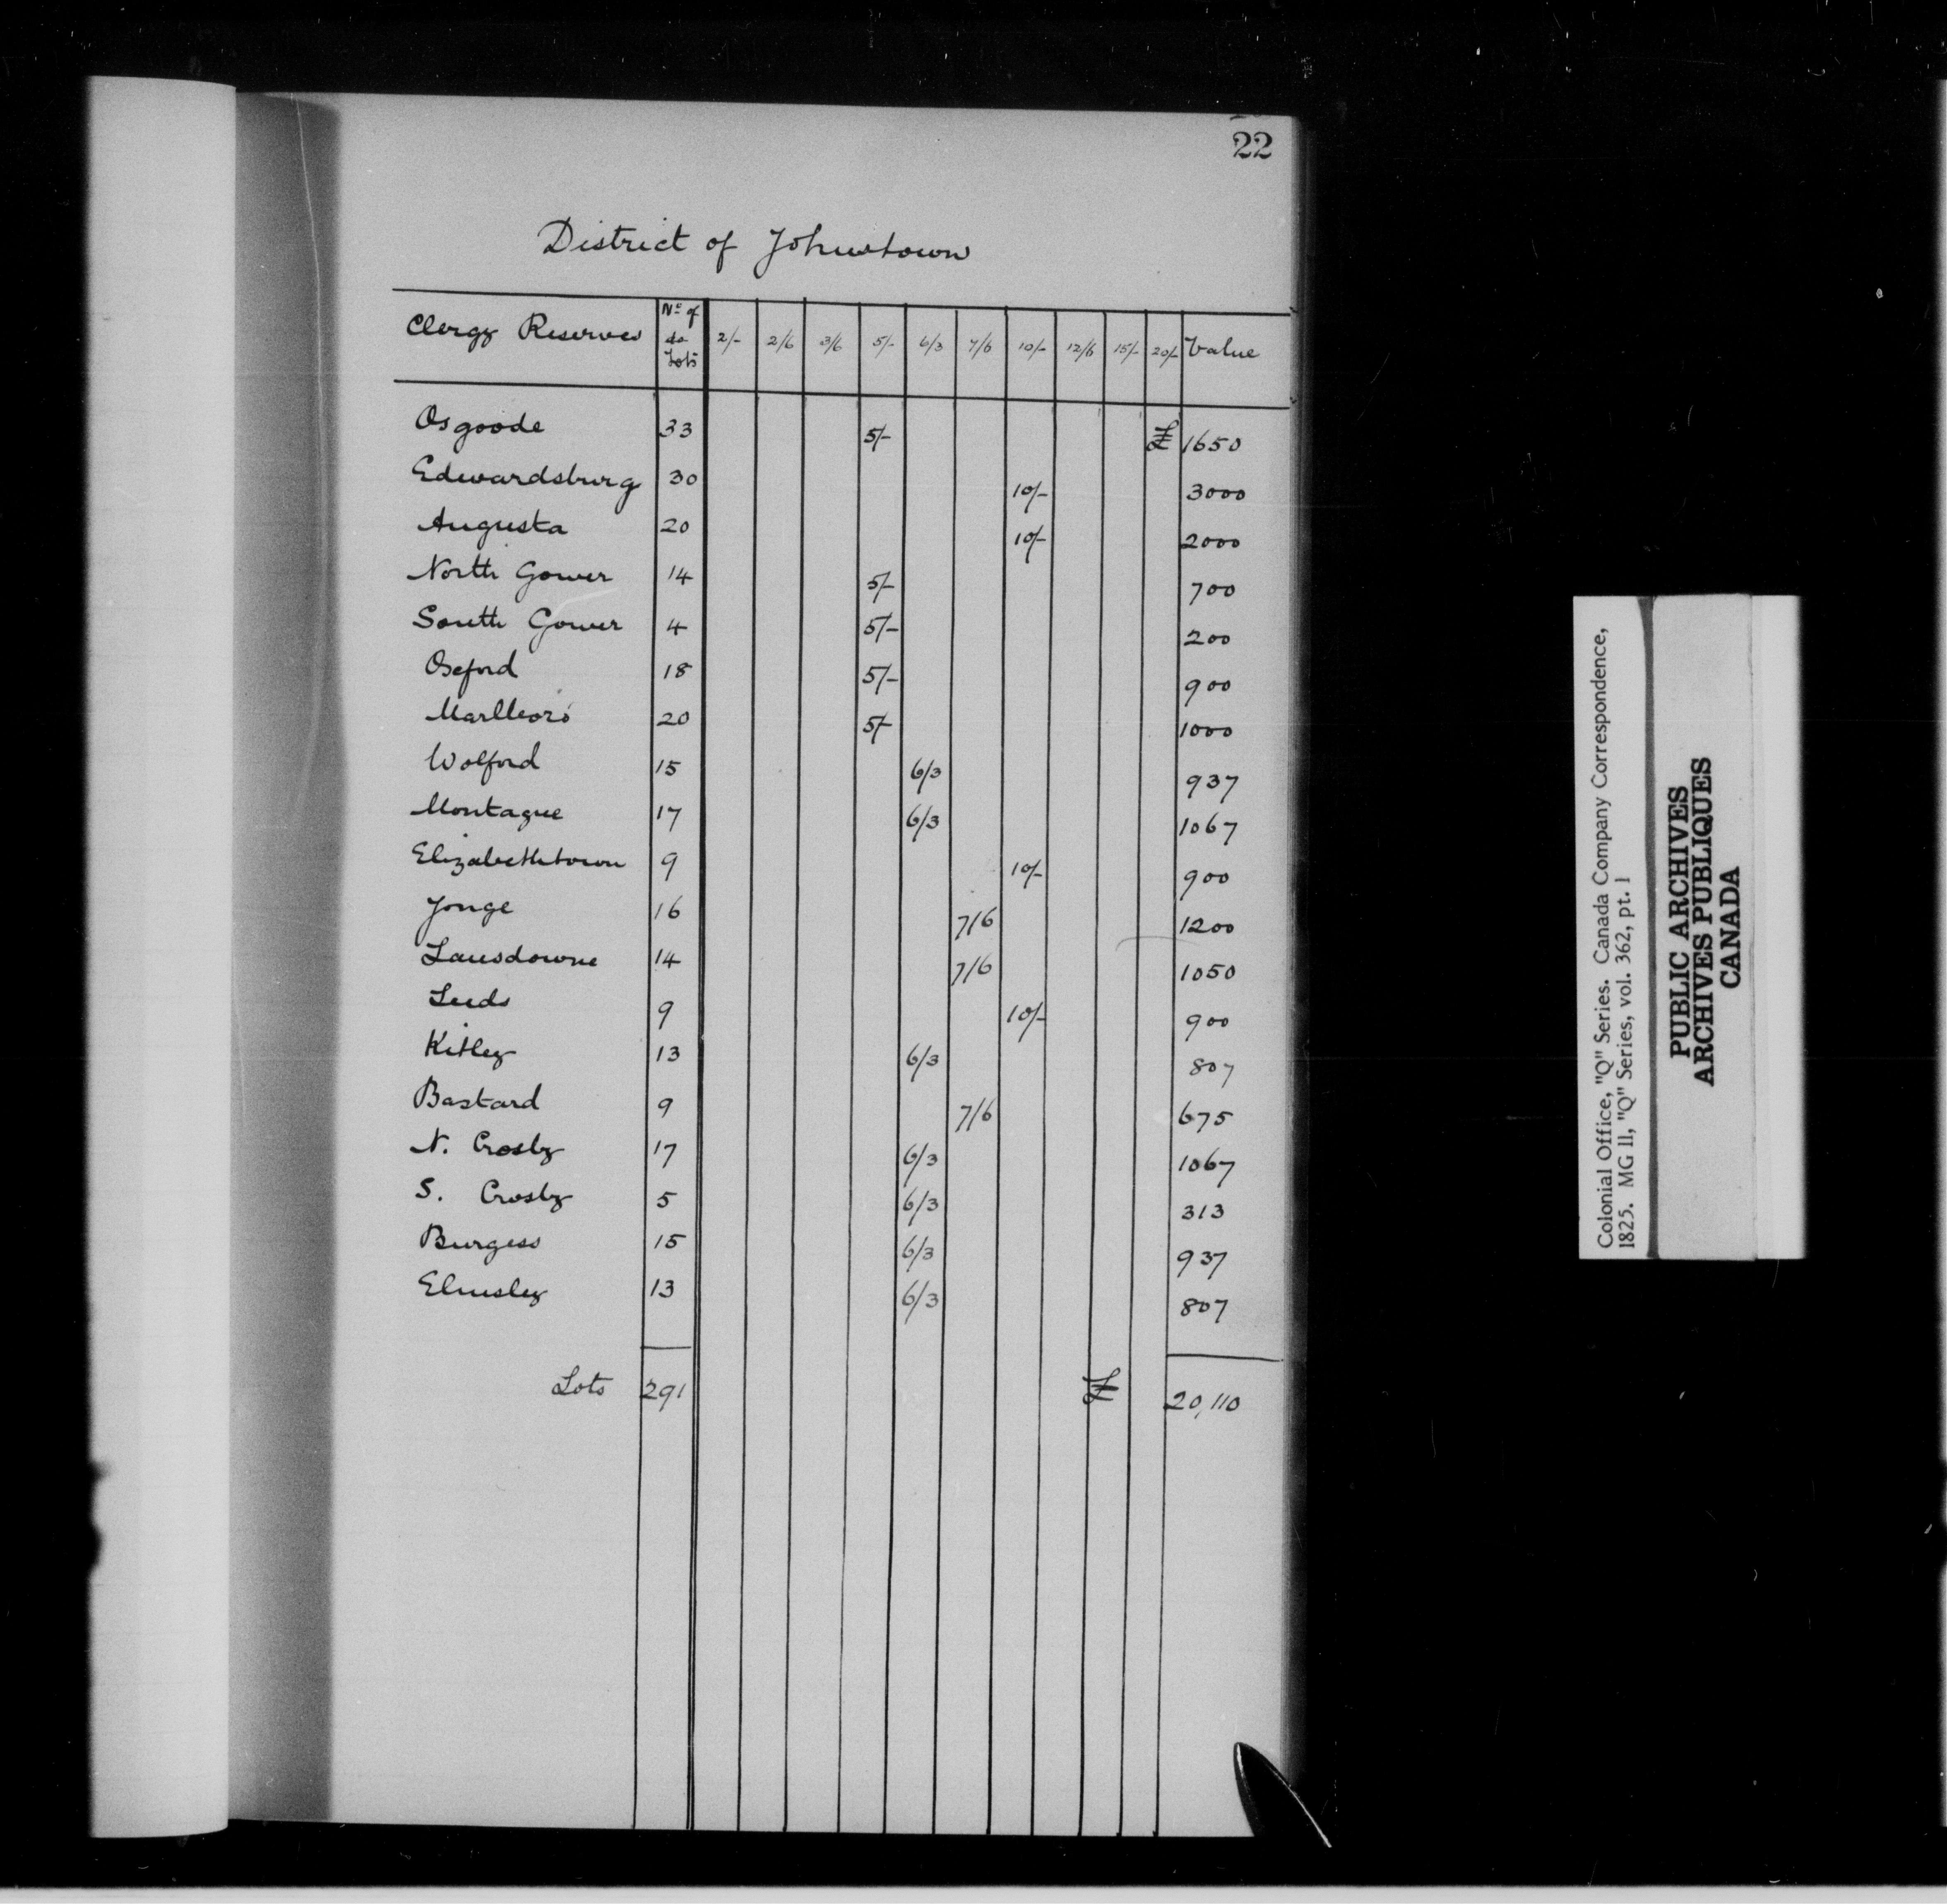 22
District of Johnstown
Clergy Reserves Nº of do Lots 2/- 2/6 3/6 5/- 6/3 7/6 10/- 12/6 15/- 20/- Value
Osgoode 33 5/- £ 1650
Edwardsburg 30 10/- 3000
Augusta 20 10/- 2000
North Gower 14 5/- 700
South Gower 4 5/- 200
Oxford 18 5/- 900
Marlboro' 20 5/- 1000
Wolford 15 6/3 937
Montague 17 6/3 1067
Elizabethtown 9 10/- 900
Yonge 16 7/6 1200
Lansdowne 14 7/6 1050
Leeds 9 10/- 900
Kitley 13 6/3 807
Bastard 9 7/6 675
N. Crosby 17 6/3 1067
S. Crosby 5 6/3 313
Burgess 15 6/3 937
Elmsley 13 6/3 807
Lots 291 £ 20,110
Colonial Office, "Q" Series. Canada Company Correspondence,
1825. MG 11, "Q" Series, vol. 362, pt. 1
PUBLIC ARCHIVES
ARCHIVES PUBLIQUES
CANADA